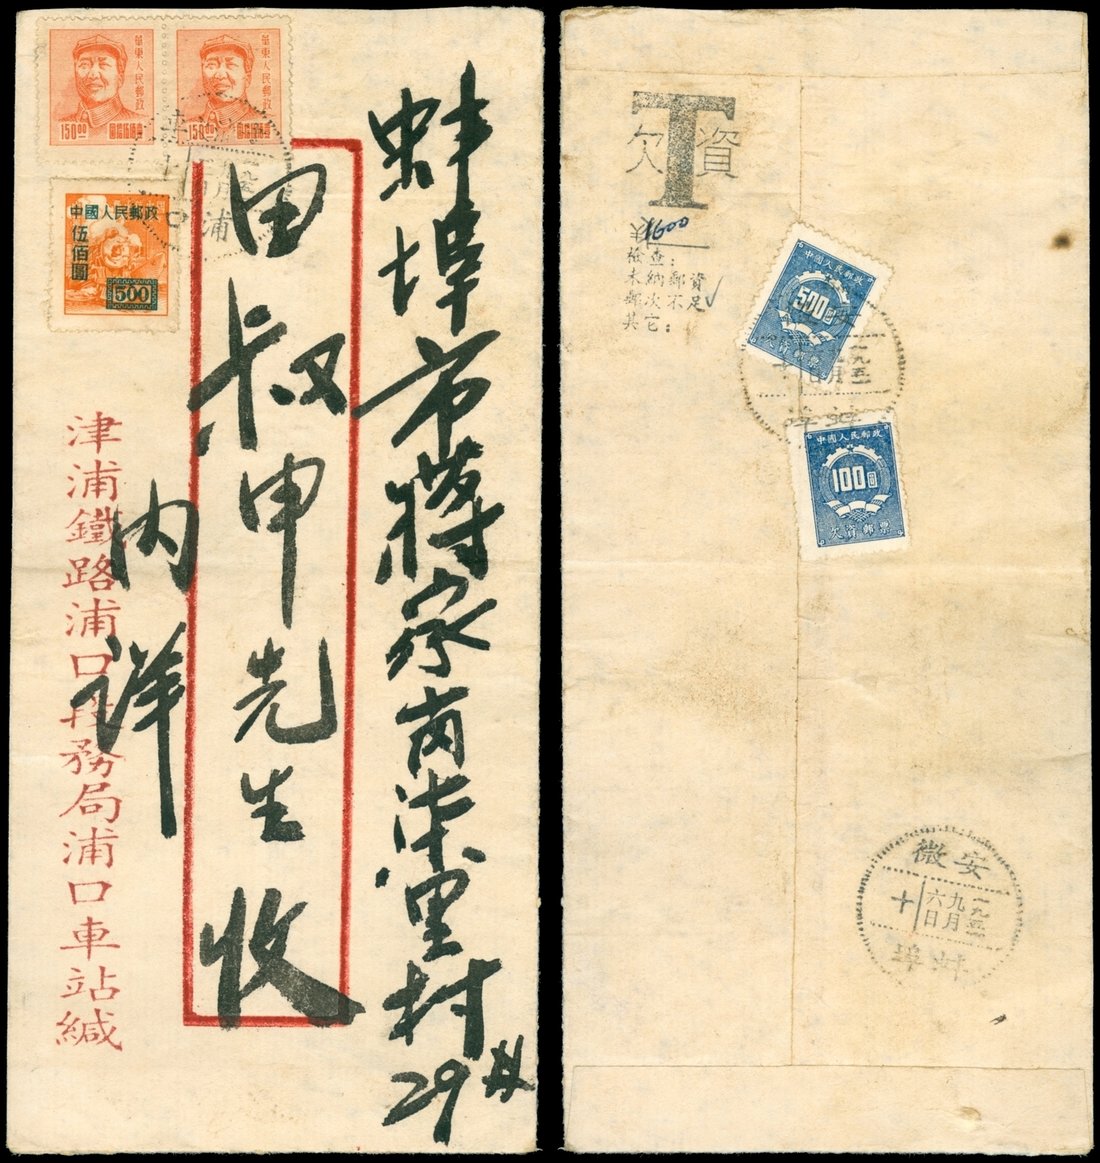 華東人民郵政
150 00
華東人民郵政
150 00
中國人民郵政
伍佰圓
500
浦
口
蚌埠市蔣家崗柒里村
29號
田叔申先生收
內詳
津浦鐵路浦口段務局浦口車站緘
T
欠資
1600
檢查:
未納郵資
郵次不足✓
其它:
中國人民郵政
500圓
欠資郵票
中國人民郵政
100圓
欠資郵票
安徽
一九五一
九月
六日
十
蚌埠